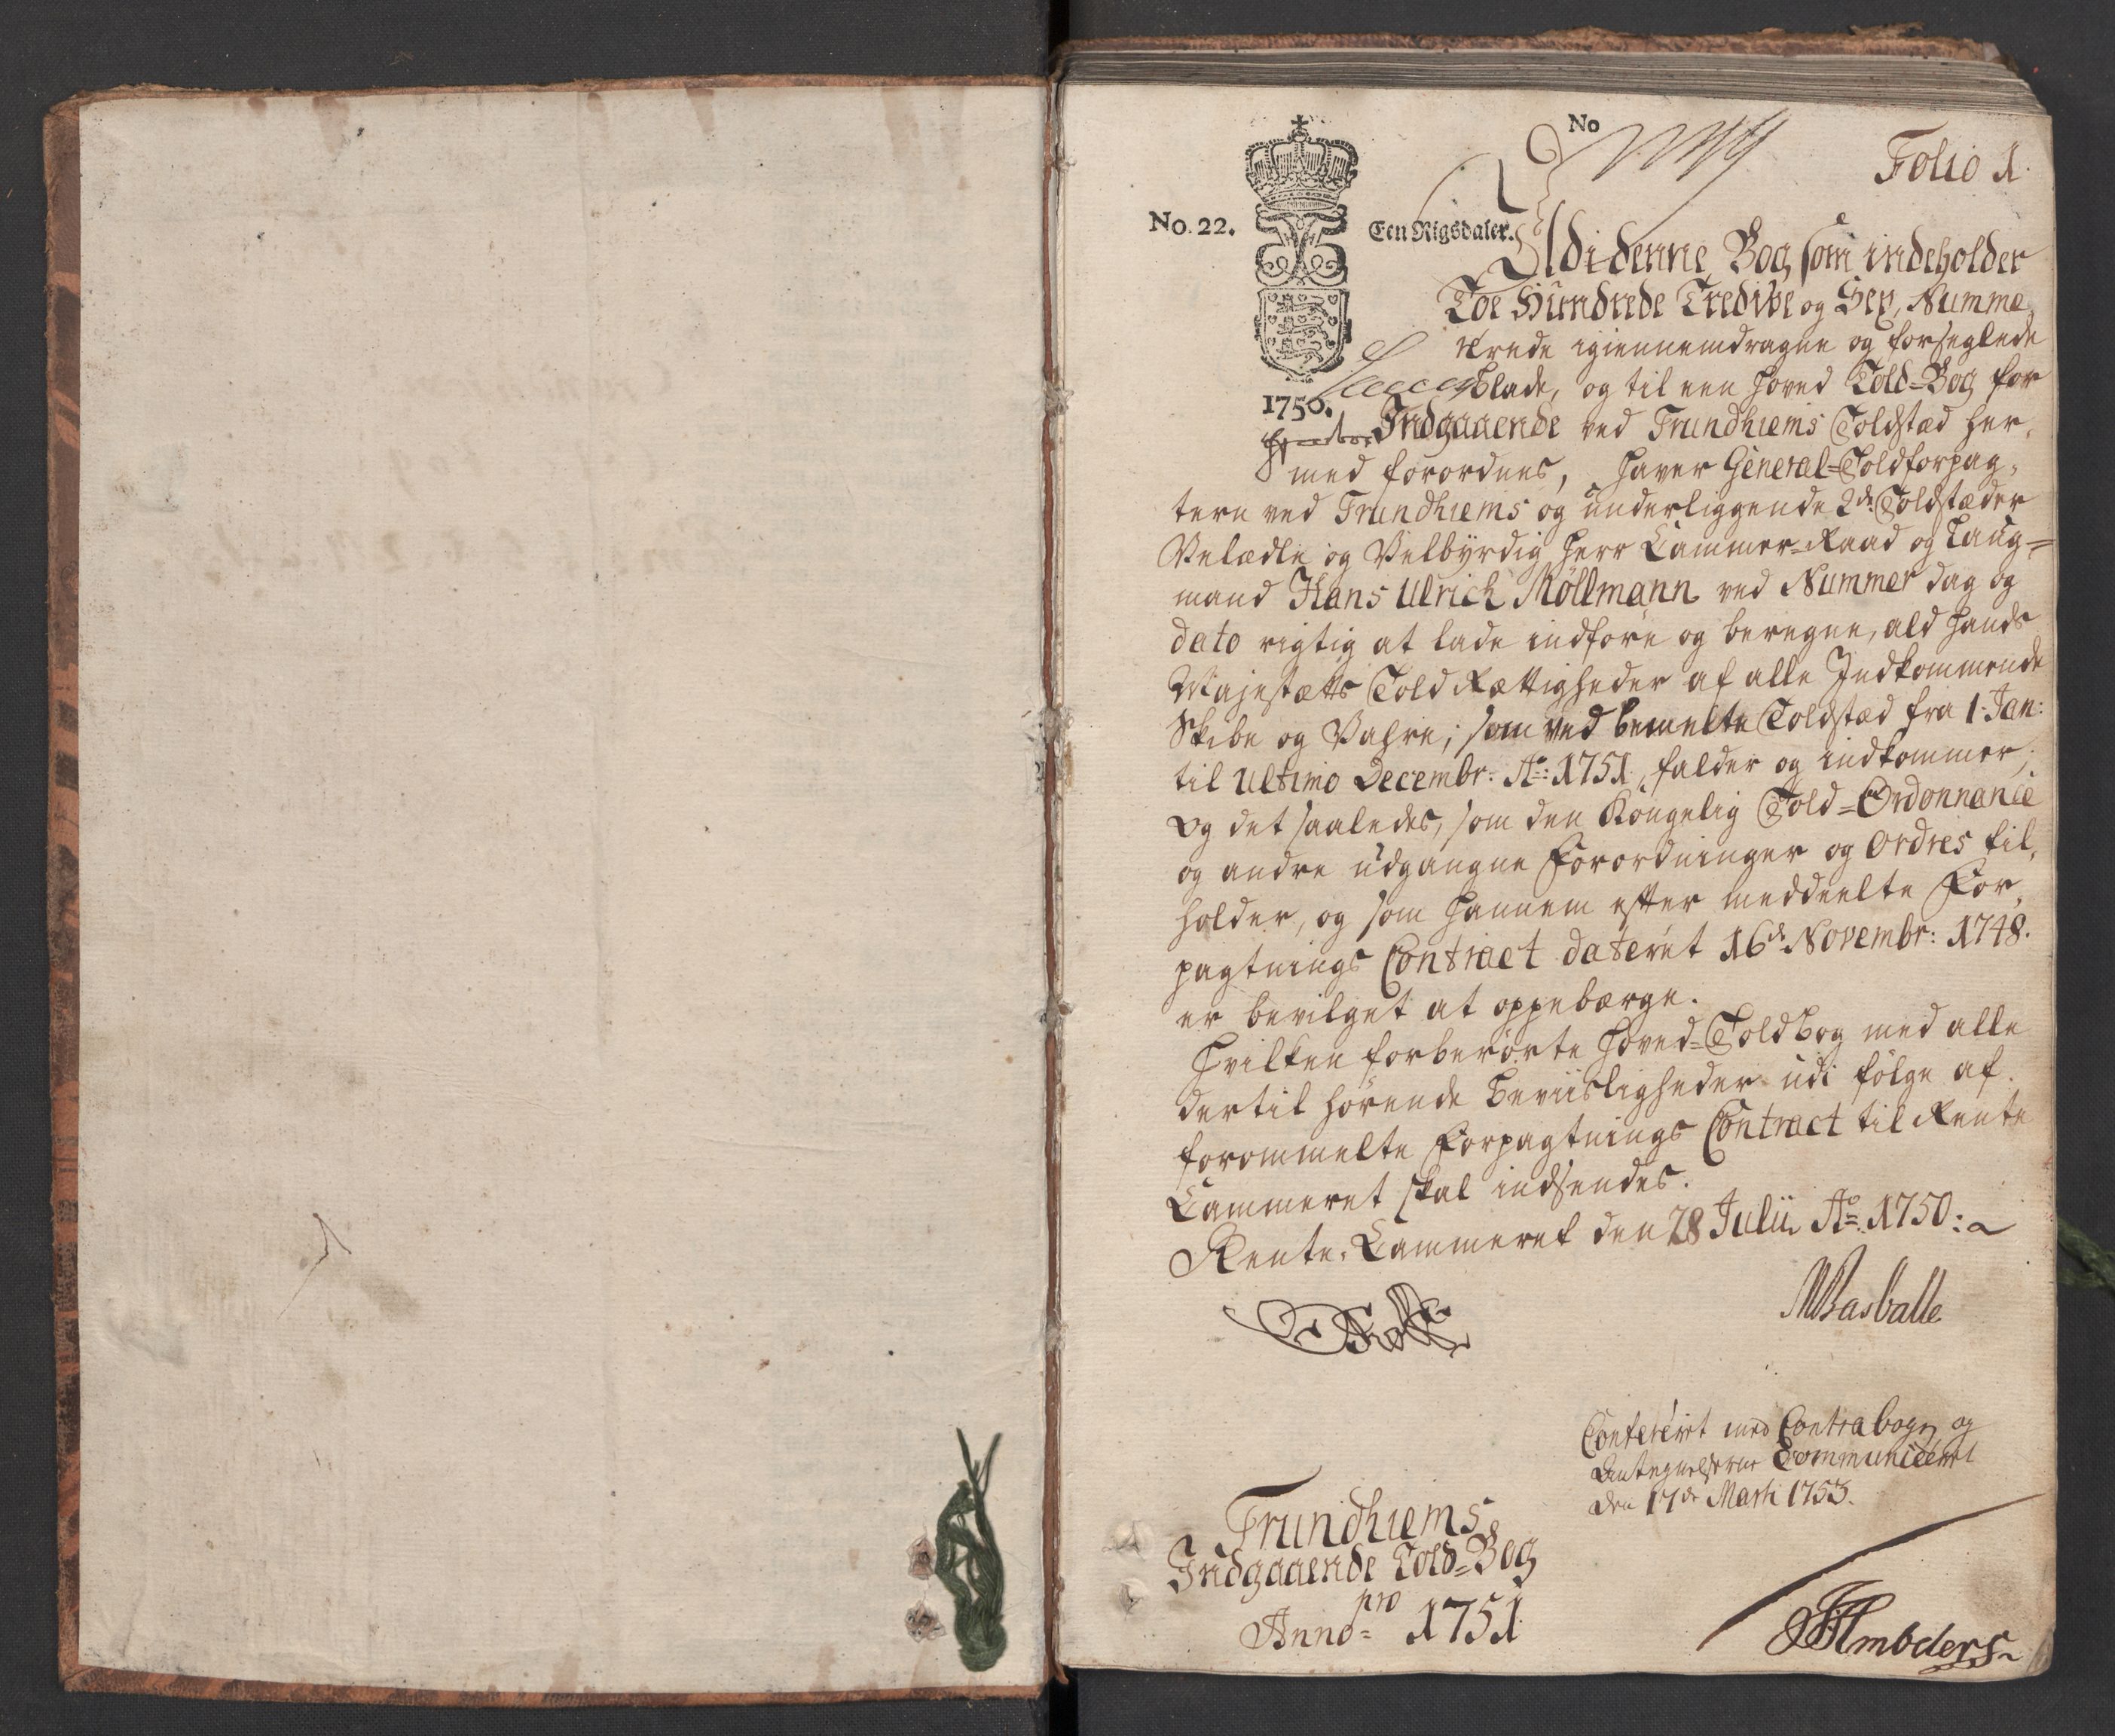 No
Folio 1.
No. 22.
Een Rigsdaler.
Udi denne Bog, som indeholder
Toe Hundrede Tredive og Sex, Numme-
rerede igiennemdragne og forseglede
Blade, og til een Hoved Told-Bog for
1750.
Indgaaende ved Trundhiems Toldsted her-
med forordnes, haver General-Toldforpag-
tern ved Trundhiems og underliggende 2de Toldstæder
Velædle og Velbyrdig Herr Cammer-Raad og Laug-
mand Hans Ulrich Möllmann ved Nummer dag og
dato rigtig at lade indføre og beregne, ald Hands
Majestætts Told Rættigheder af alle Indkommende
Skibe og Vahre, som ved bemelte Toldsted fra 1. Jan:
til Ultimo Decembr: Ao: 1751, falder og indkommer,
og det saaledes, som den Kongelig Told-Ordonnance
og andre udgangne Forordninger og Ordres til-
holder, og som hannem efter meddeelte For-
pagtnings Contract dateret 16de Novembr: 1748.
er bevilget at oppebærge.
Hvilken forberørte Hoved-Toldbog med alle
dertil hørende Beviisligheder udi følge af
forommelte Forpagtnings Contract til Rente
Cammeret skal indsendes.
Rente-Cammeret den 28 Julii Ao. 1750:
MBasballe
Confereret med Contrabogen og
Antegnelserne Communiceret
den 17de Marti 1753.
Trundhiems
Indgaaende Told-Bog
pro
Anno 1751